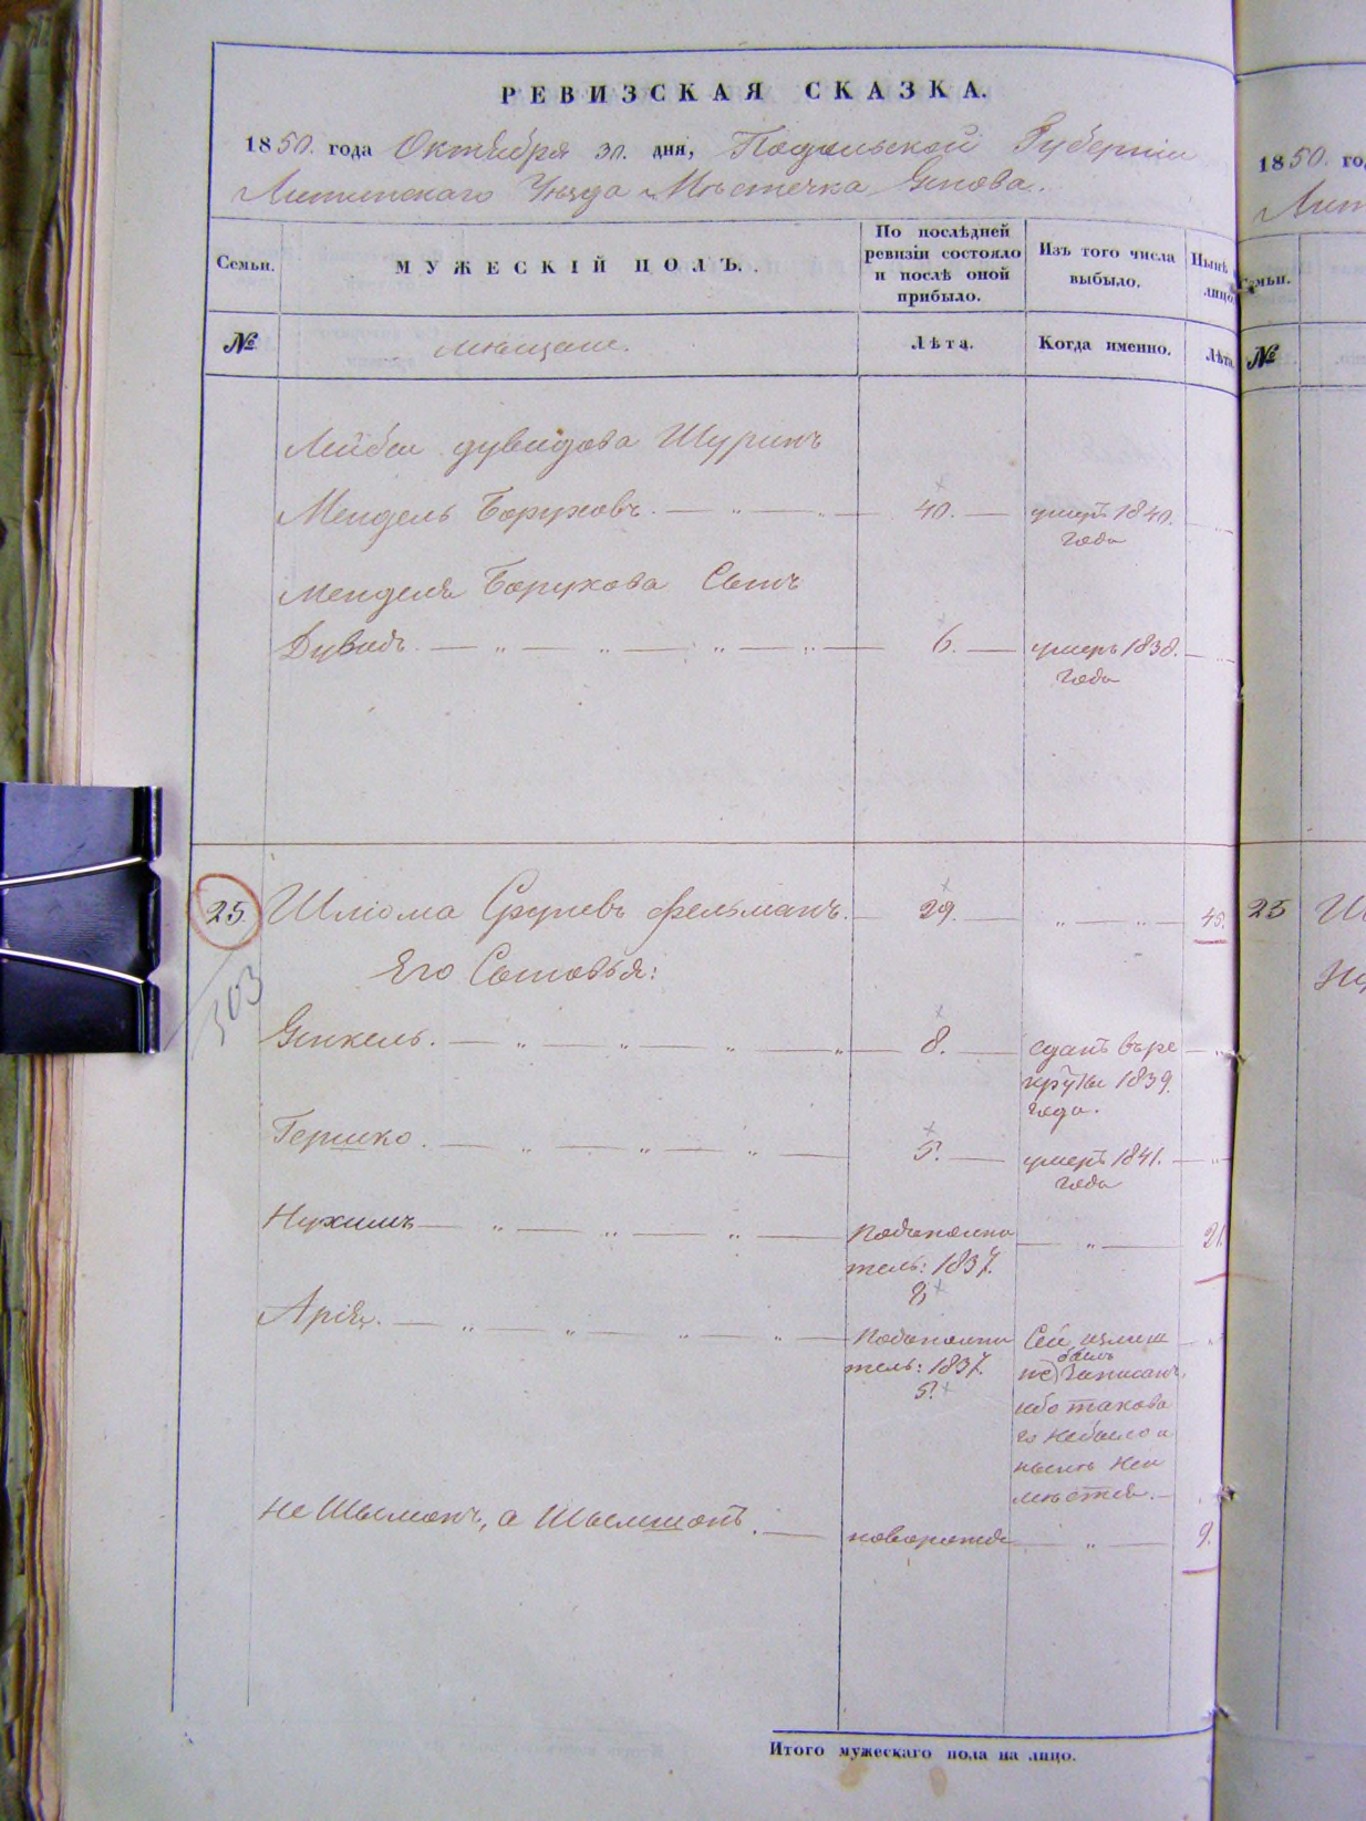 РЕВИЗСКАЯ СКАЗКА.
1850. года Октября 30. дня, Подольской Губерніи
Литинскаго Уѣзда Мѣстечка Янова.
Семьи.
МУЖЕСКІЙ ПОЛЪ.
По послѣдней ревизіи состояло и послѣ оной прибыло.
Изъ того числа выбыло.
Нынѣ
лицо
№
мѣщане.
Лѣта.
Когда именно.
Лѣта
Лейба Дувидова Шуринъ
Мендель Боруховъ. 40. умеръ 1840. года
Менделя Борухова Сынъ
Дувидъ. 6. умеръ 1838. года
25. Шліома Срулевъ Фельманъ. 29. 45.
Его Сыновья:
303
Янкель. 8. сданъ въ ре
круты 1839.
года.
Гершко. 5. умеръ 1841.
года
Нухимъ Подополни 21.
тель: 1837.
8
Арія. Подополни Сей излиш
тель: 1837. не былъ записанъ,
5. ибо таково
го небыло и
нынѣ неи
мѣется.
Не Шымонъ, а Шымшонъ. новорожден 9.
Итого мужескаго пола на лицо.
1850. го
Лит
Семьи.
№
25 Ш